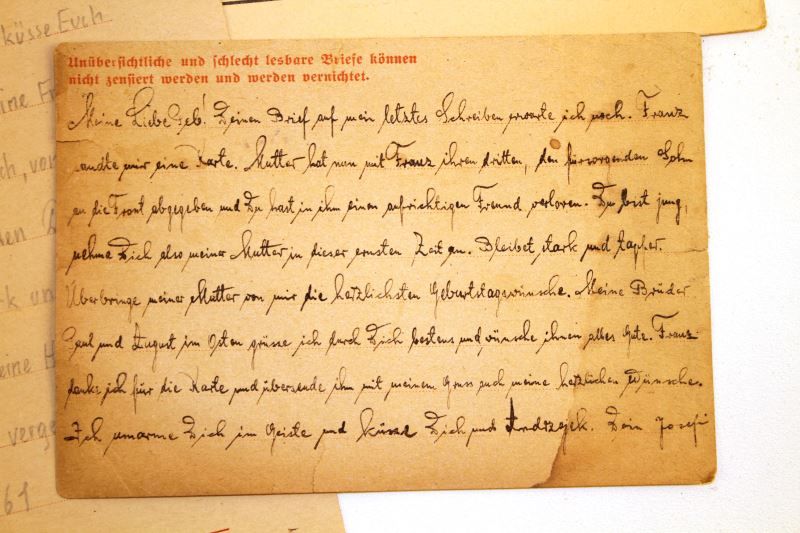 küsse Euch
Unübersichtliche und schlecht lesbare Briefe können
nicht zensiert werden und werden vernichtet.
Meine Liebe Seb! Deinen Brief auf mein letztes Schreiben erwarte ich noch. Franz
sandte mir eine Karte. Mutter hat nun mit Franz ihren dritten, den fürsorgenden Sohn
an die Front abgegeben und Du hast in ihm einen aufrichtigen Freund verloren. Du bist jung,
nehme Dich also meiner Mutter in dieser ernsten Zeit an. Bleibet stark und tapfer.
Überbringe meiner Mutter von mir die herzlichsten Geburtstagswünsche. Meine Brüder
Paul und August im Osten grüsse ich durch Dich bestens und wünsche ihnen alles Gute. Franz
danke ich für die Karte und übersende ihm mit meinem Gruss auch meine herzlichen Wünsche.
Ich umarme Dich im Geiste und küsse Dich und Andrzejek. Dein Josef